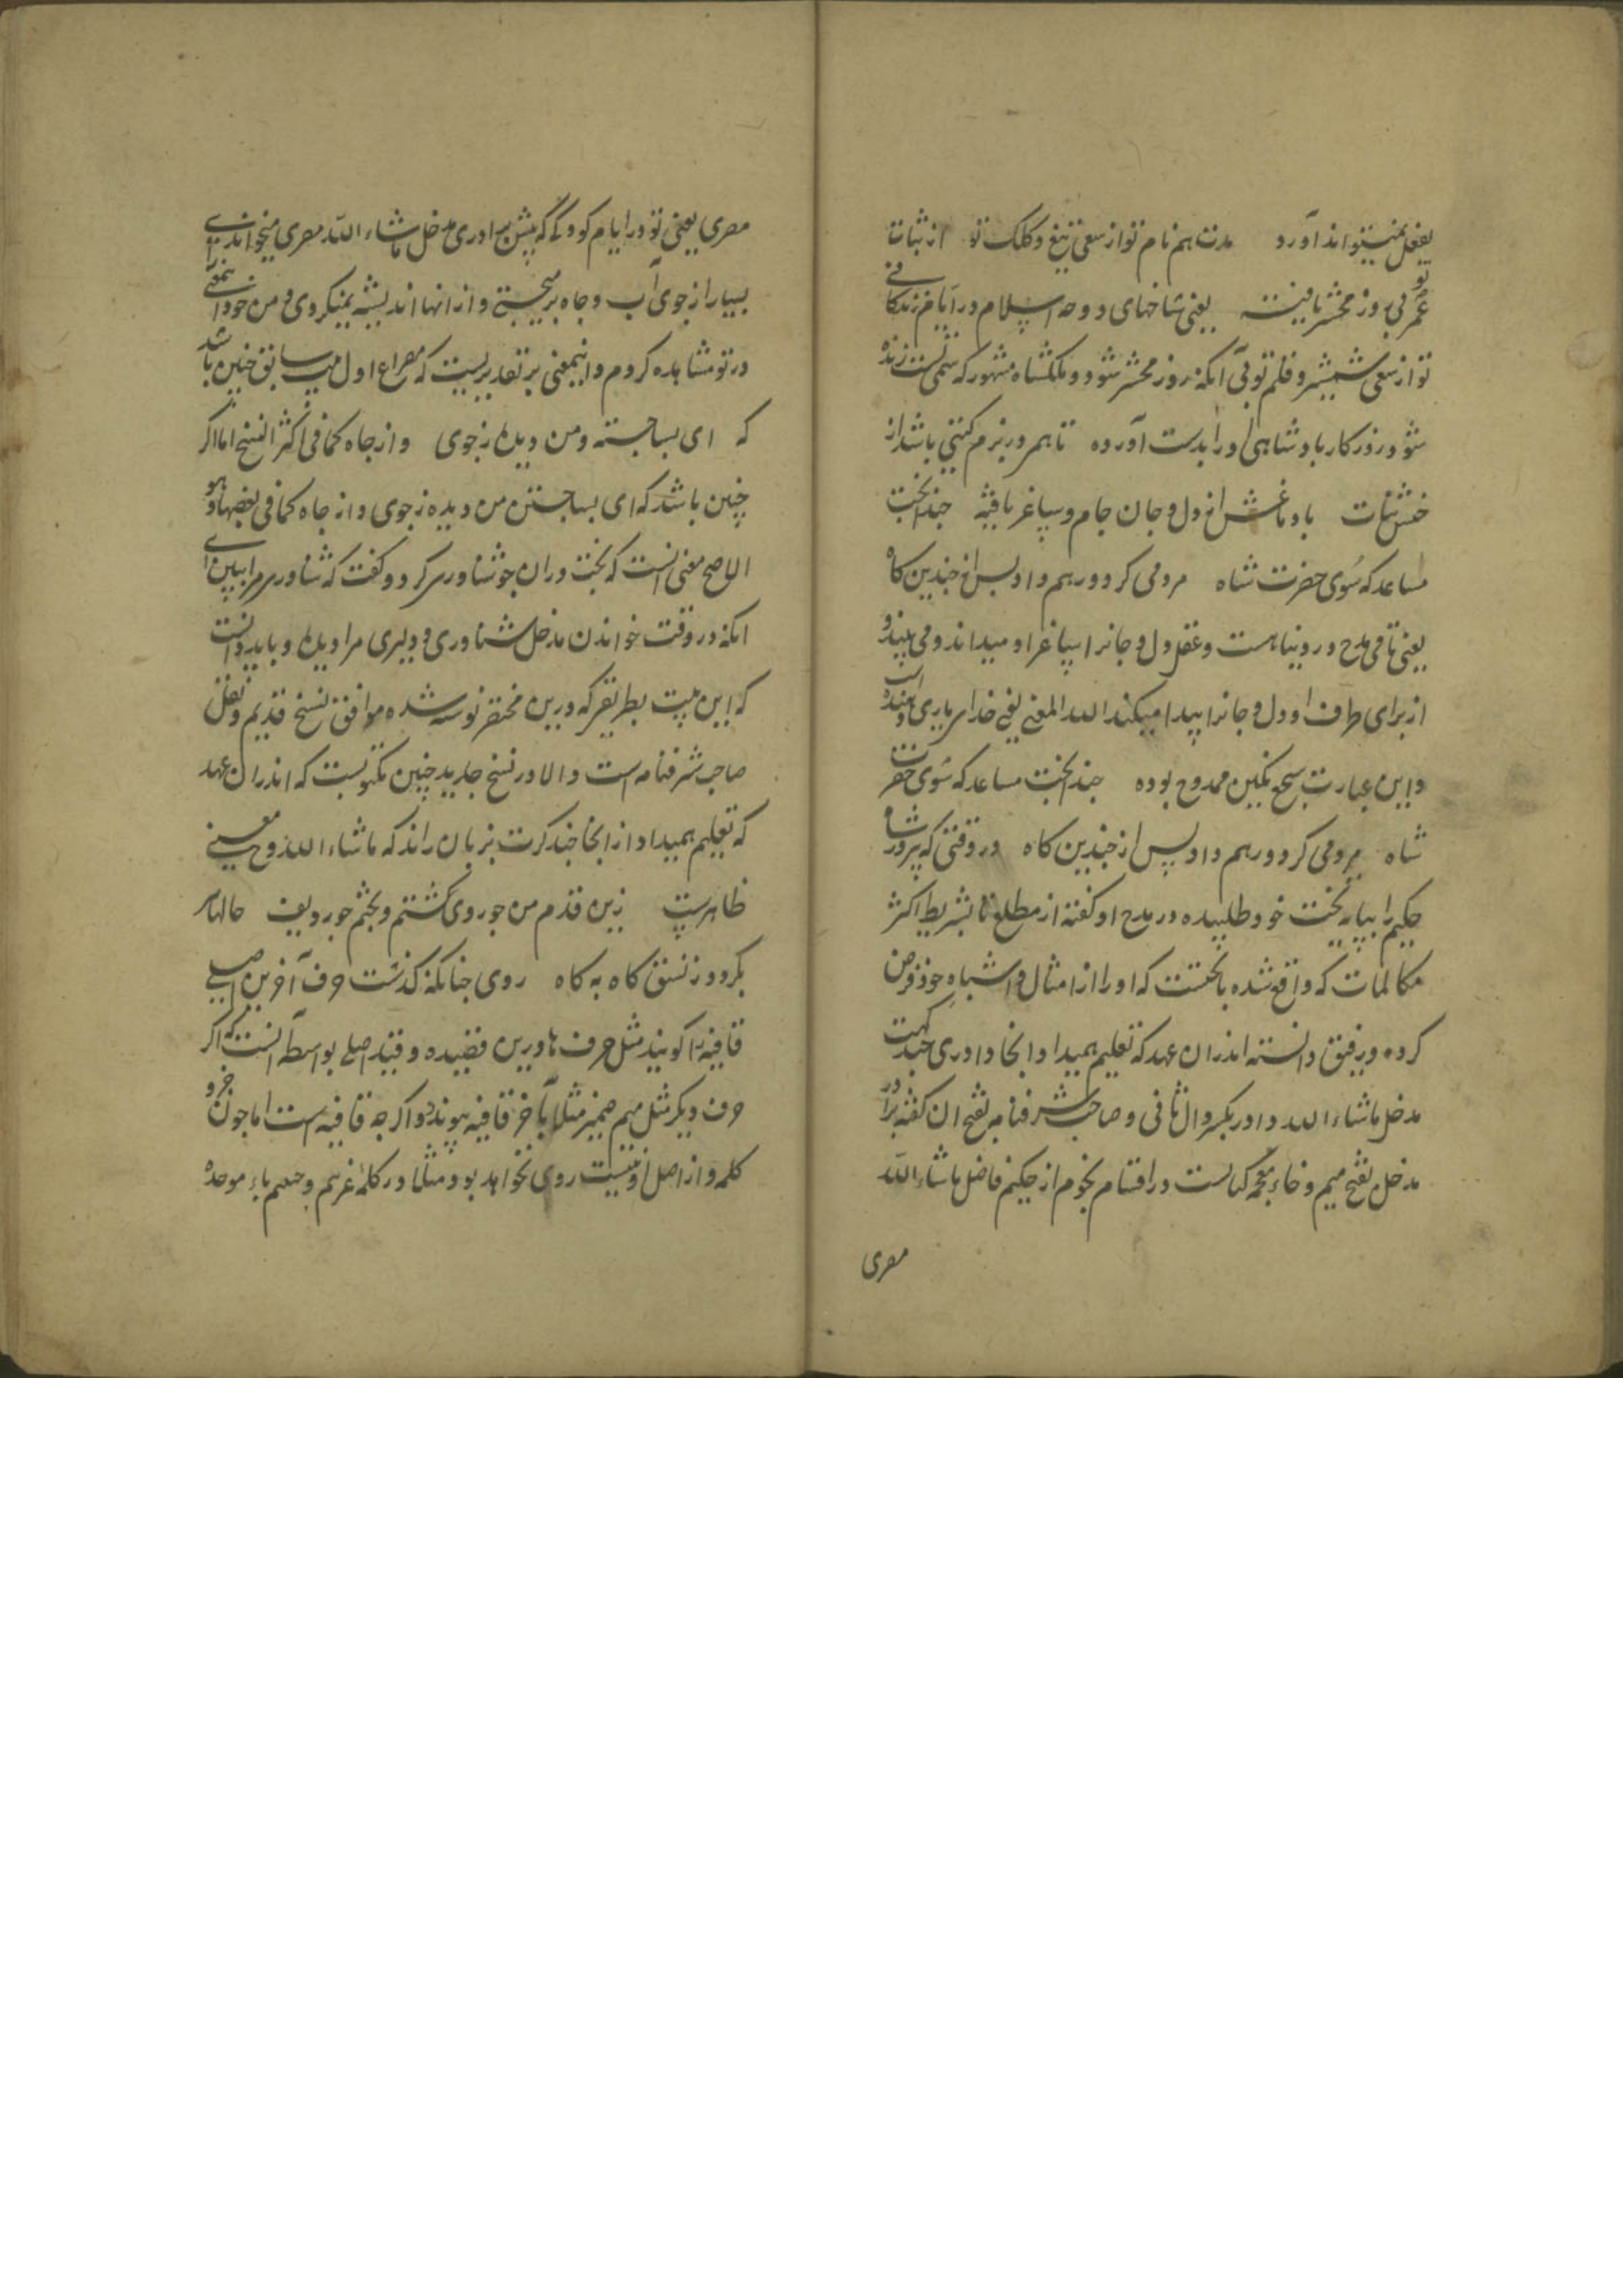 بفعل نمیتواند آورد مدت هم نام تو از سعی تیغ و کلک تو از ثبات
عمر تو بی روز محشر یافته یعنی شاخهای دوحه اسلام در ایام زندکانی
تو از سعی شمشیر و قلم تو بی آنکه روز محشر شود و ملکشاه مشهور که سمی تست زنده
شود روزکار بادشاهی او را بدست آورده تا بهر در بزم کیتی باشد از
جنس نبات باد ماغش از دل و جان جام و ساغر یافته حبذا بخت
مساعد که سوی حضرت شاه مردمی کرد و رهم داد بس از چندین کاه
یعنی تا می مدح در دنیا هست و عقل دل و جانرا ساغر او میداند و می بیند و
از برای ظرف او دل و جانرا پیدا میکند الله المغنی یعنی خدای یاری دهنده است
و این عبارت سجع نکین ممدوح بوده حبذا بخت مساعد که سوی حضرت
شاه مردمی کرد و رهم داد پس از چندین کاه در وقتی که پیروزشاه
حکیم را بپایه تخت خود طلبیده در مدح او کفته از مطلع تا بشریطه اکثر
مکالمات که واقع شده با بختست که او را از امثال و اشباه خود فرض
کرده و رفیق دانسته اندران عهد که تعلیم همیداد آنجا داوری چند کهت
مدخل ماشاءالله داور بکسر وال ثانی و صاحب شرفنامه بفتح ان کفته برادر
مدخل بفتح میم و خاء معجمه کتابست در اقسام نجوم از حکیم فاضل ماشاءالله
مصری
مصری یعنی تو در ایام کودکی که پیش برادری مدخل ماشاءالله مصری میخواندی
بسیار از جوی آب و چاه برمیجستی و از انها اندیشه نمیکردی و من خود اینمعنی را
در تو مشاهده کردم و اینمعنی بر تقدیریست که مصراع اول بیت سابق چنین باشد
که ای بسا جسته و من دیده ز جوی و از چاه کما فی اکثر النسخ اما اکر
چنین باشد که ای بسا جستن من دیده ز جوی و از چاه کما فی بعضها و هو
الاصح معنی انست که بخت دران جو شناور سر کرد و کفت که شناور مرا ببین ای
انکه در وقت خواندن مدخل شناوری و دلیری مرا دیده و باید دانست
که این بیت بطریقی که درین مختصر نوشته شده موافق نسخ قدیم و نقل
صاحب شرفنامه است و الا در نسخ جدید چنین مکتوبست که اندران عهد
که تعلیم همیداد از انجا چند کرت بزبان راند که ماشاءالله و ح معنی
ظاهرست زین قدم من چو روی کشتم و بختم چو ردیف حالها
بکرد و ز نسق کاه به کاه روی چنانکه کذشت حرف آخرین اصلی
قافیه را کویند مثل حرف ها درین قصیده و قید اصلی بواسطه آنست که اکر
حرف دیکر مثل میم ضمیر مثلا بآخر قافیه پیوندد و اکرچه قافیه است اما چون جزو
کلمه و از اصل او نیست روی نخواهد بود مثلا در کلمه غرم و جعم باء موحده